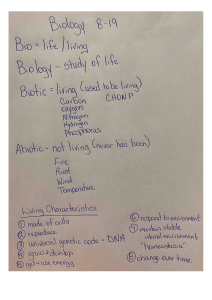 Biology 8-19
Bio = life / living
Biology - study of life
Biotic = living (used to be living)
Carbon CHONP
oxygen
Nitrogen
Hydrogen
Phosphorus
Abiotic - not living (never has been)
Fire
Rust
Wind
Temperature
Living Characteristics
① made of cells
② reproduce
③ universal genetic code - DNA
④ grow + develop
⑤ get + use energy
⑥ respond to environment
⑦ maintain stable
internal environment
"homeostasis"
⑧ change over time